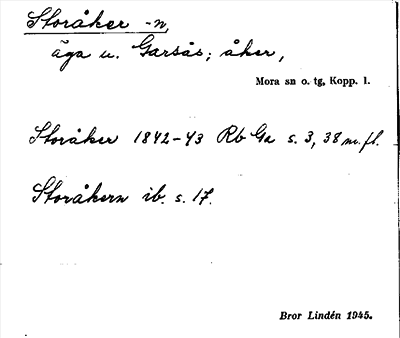 Storåker -n,
äga u. Garsås; åker,
Mora sn o. tg, Kopp. l.
Storåker 1842-43 Rb Ga s. 3, 38 m. fl.
Storåkern ib. s. 17.
Bror Lindén 1945.